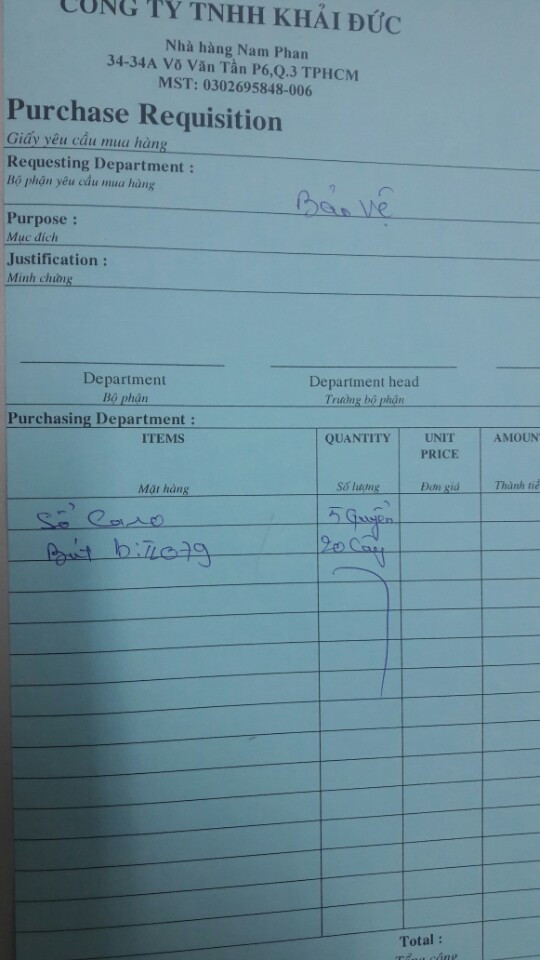 CÔNG TY TNHH KHẢI ĐỨC
Nhà hàng Nam Phan
34-34A Võ Văn Tần P6,Q.3 TPHCM
MST: 0302695848-006
Purchase Requisition
Giấy yêu cầu mua hàng
Requesting Department :
Bộ phận yêu cầu mua hàng
Bảo vệ
Purpose :
Mục đích
Justification :
Minh chứng
Department Department head
Bộ phận Trưởng bộ phận
Purchasing Department :
ITEMS QUANTITY UNIT PRICE AMOUN
Mặt hàng Số lượng Đơn giá Thành tiề
Sổ Caro 5 Quyển
Bút 079 20 Cây
Total :
Tổng cộng